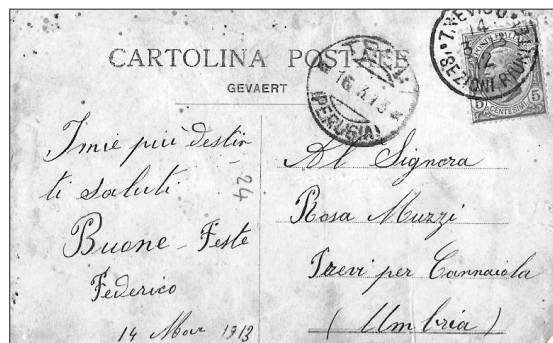 CARTOLINA POSTALE
GEVAERT
TREVI
16.3.13
(PERUGIA)
TREVISO
SEZIONI RIUNITE
5 CENTESIMI 5
I miei più destin
ti saluti
Buone - Feste
Federico
14 Mar 1913
24
Al Signora
Rosa Muzzi
Trevi per Cannaiola
(Umbria)